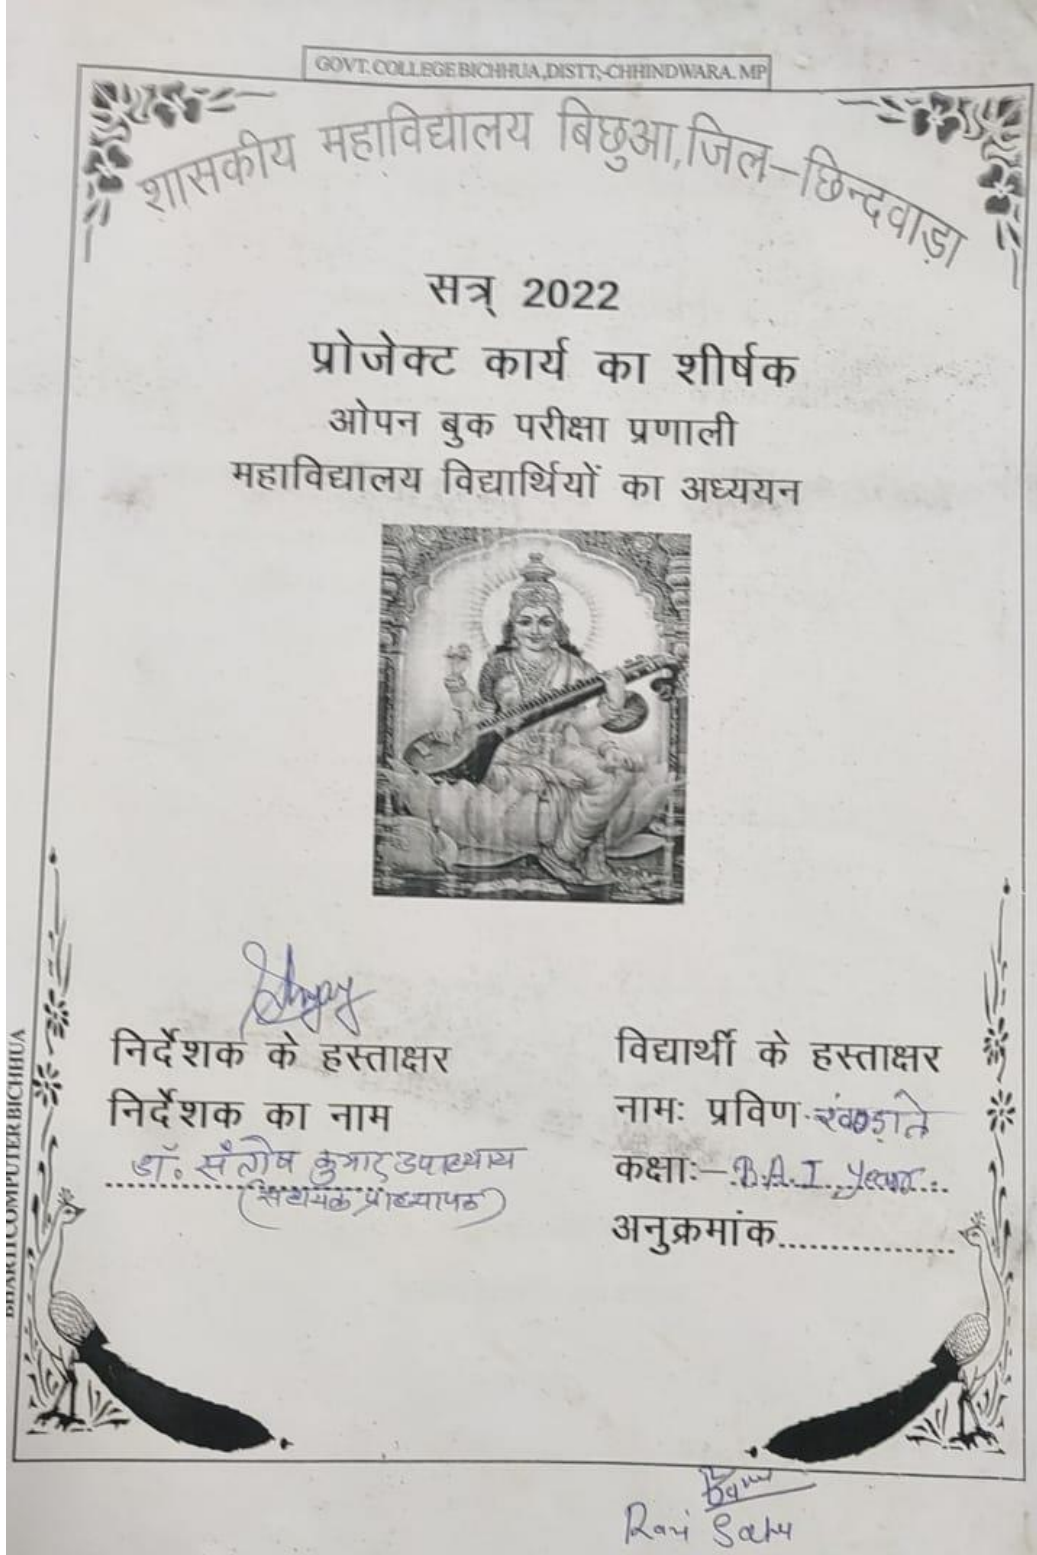 GOVT. COLLEGE BICHHUA,DISTT;-CHHINDWARA. MP
शासकीय महाविद्यालय बिछुआ,जिल–छिन्दवाड़ा
सत्र् 2022
प्रोजेक्ट कार्य का शीर्षक
ओपन बुक परीक्षा प्रणाली
महाविद्यालय विद्यार्थियों का अध्ययन
निर्देशक के हस्ताक्षर
निर्देशक का नाम
डॉ. संतोष कुमार उपाध्याय
(सहायक प्राध्यापक)
विद्यार्थी के हस्ताक्षर
नामः प्रविण खवाड़ते
कक्षाः– B.A. I year
अनुक्रमांक
BHARTI COMPUTER BICHHUA
Ravi Sahu